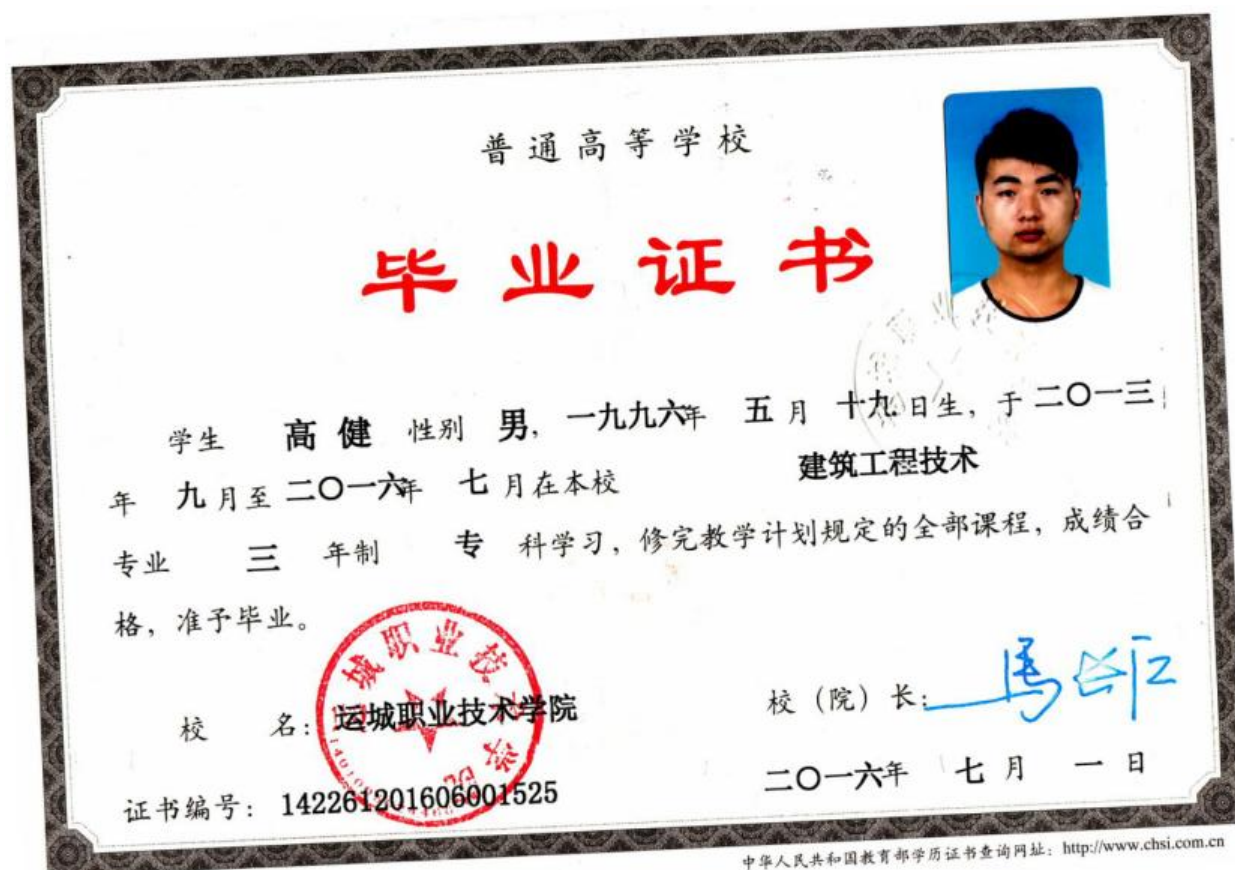 普通高等学校
毕业证书
学生 高健 性别 男，一九九六年 五月 十九日生，于二〇一三
年 九月至二〇一六年 七月在本校 建筑工程技术
专业 三 年制 专 科学习，修完教学计划规定的全部课程，成绩合
格，准予毕业。
运城职业技术学院
校 名：运城职业技术学院
校（院）长：
证书编号：142261201606001525
二〇一六年 七月 一日
中华人民共和国教育部学历证书查询网址：http://www.chsi.com.cn